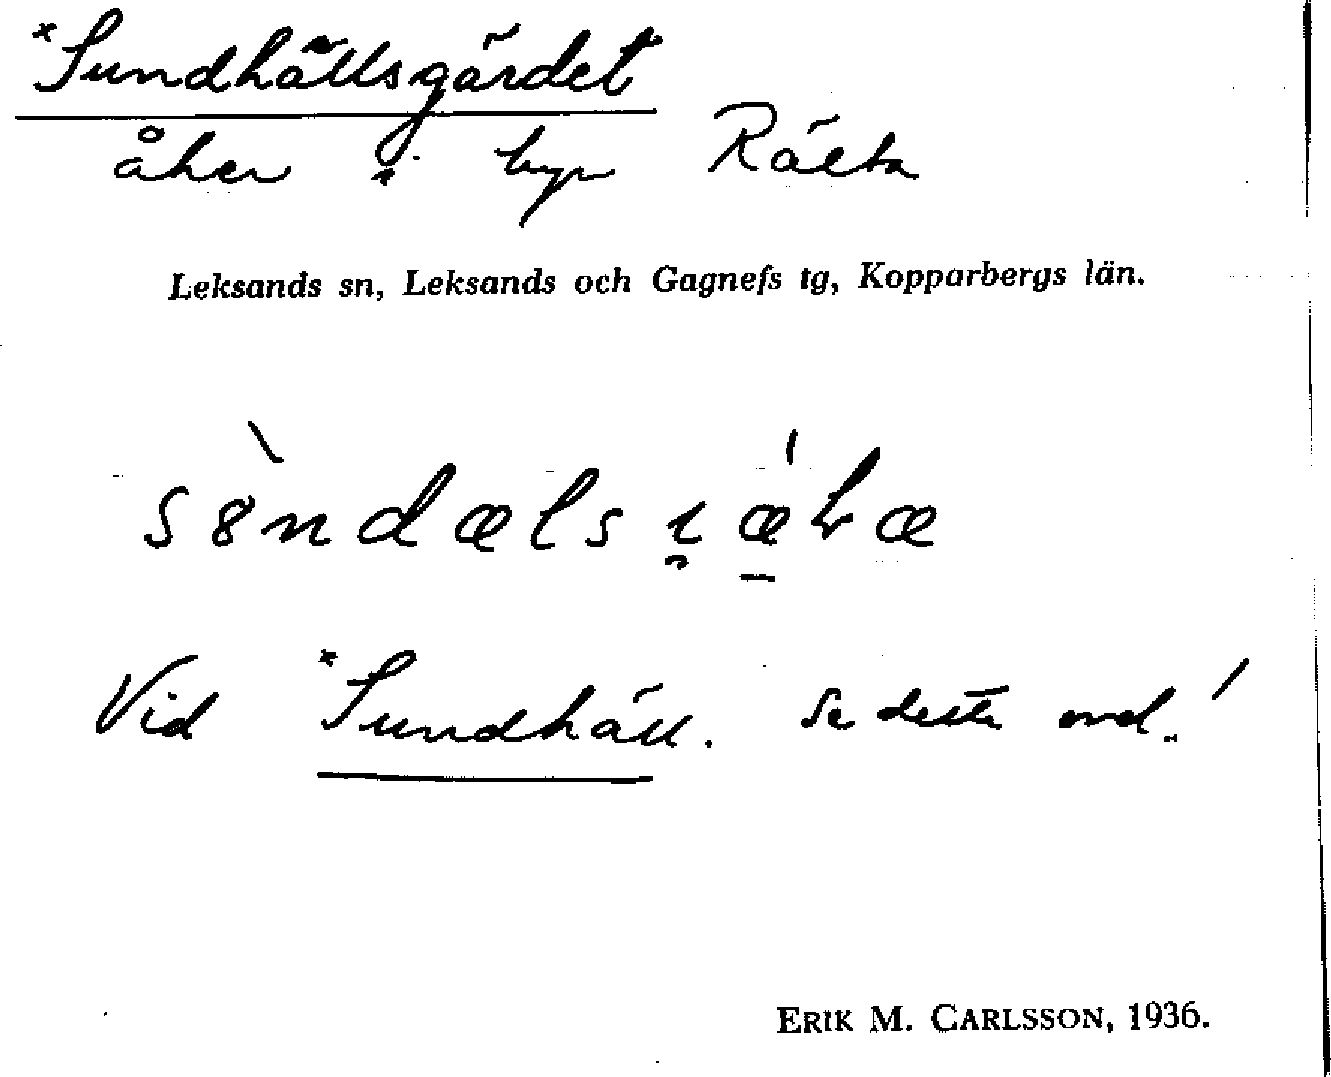 *Sundhällsgärdet
åker i byn Rälta
Leksands sn, Leksands och Gagnefs tg, Kopparbergs län.
Vid *Sundhäll. Se detta ord!
ERIK M. CARLSSON, 1936.